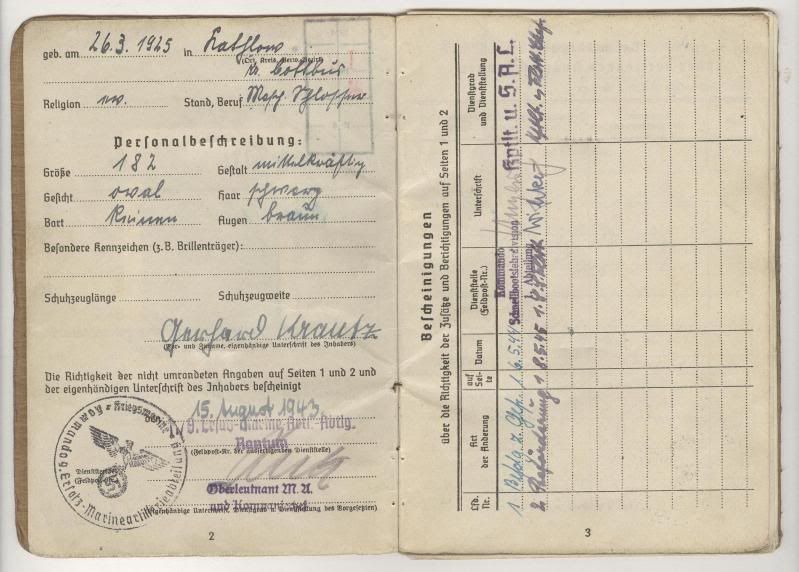 geb. am 26.3.1925 in Kathlow
(Ort, Kreis, Verw.-Bezirk)
Kr. Cottbus
Religion ev. Stand, Beruf Masch. Schlosser
Personalbeschreibung:
Größe 182 Gestalt mittelkräftig
Gesicht oval Haar schwarz
Bart keinen Augen braun
Besondere Kennzeichen (z.B. Brillenträger):
Schuhzeuglänge Schuhzeugweite
Gerhard Krautz
(Vor- und Zuname, eigenhändige Unterschrift des Inhabers)
Die Richtigkeit der nicht umrandeten Angaben auf Seiten 1 und 2 und
der eigenhändigen Unterschrift des Inhabers bescheinigt
15. August 1943
9. Ersatz-Marine Artl.-Abtlg.
Rantum
(Feldpost-Nr. der ausfertigenden Dienststelle)
Kriegsmarine
Kommando 9. Ersatz-Marineartillerieabteilung
Dienststempel
(Feldpost-Nr.)
Oberleutnant M. A.
und
(Eigenhändige Unterschrift, Dienstgrad u. Dienststellung des Vorgesetzten)
2
Bescheinigungen
über die Richtigkeit der Zusätze und Berichtigungen auf Seiten 1 und 2
Lfd. Nr.
Art der Änderung
auf Seite
Datum
Dienststelle (Feldpost-Nr.)
Unterschrift
Dienstgrad und Dienststellung
1. Befdg. z. Gfr. 1 6.5.44
Kommando
Schnellbootslehrdivision
Abteilung
Kptlt. u. S.A.C.
2. Beförderung 1 8.5.45
3